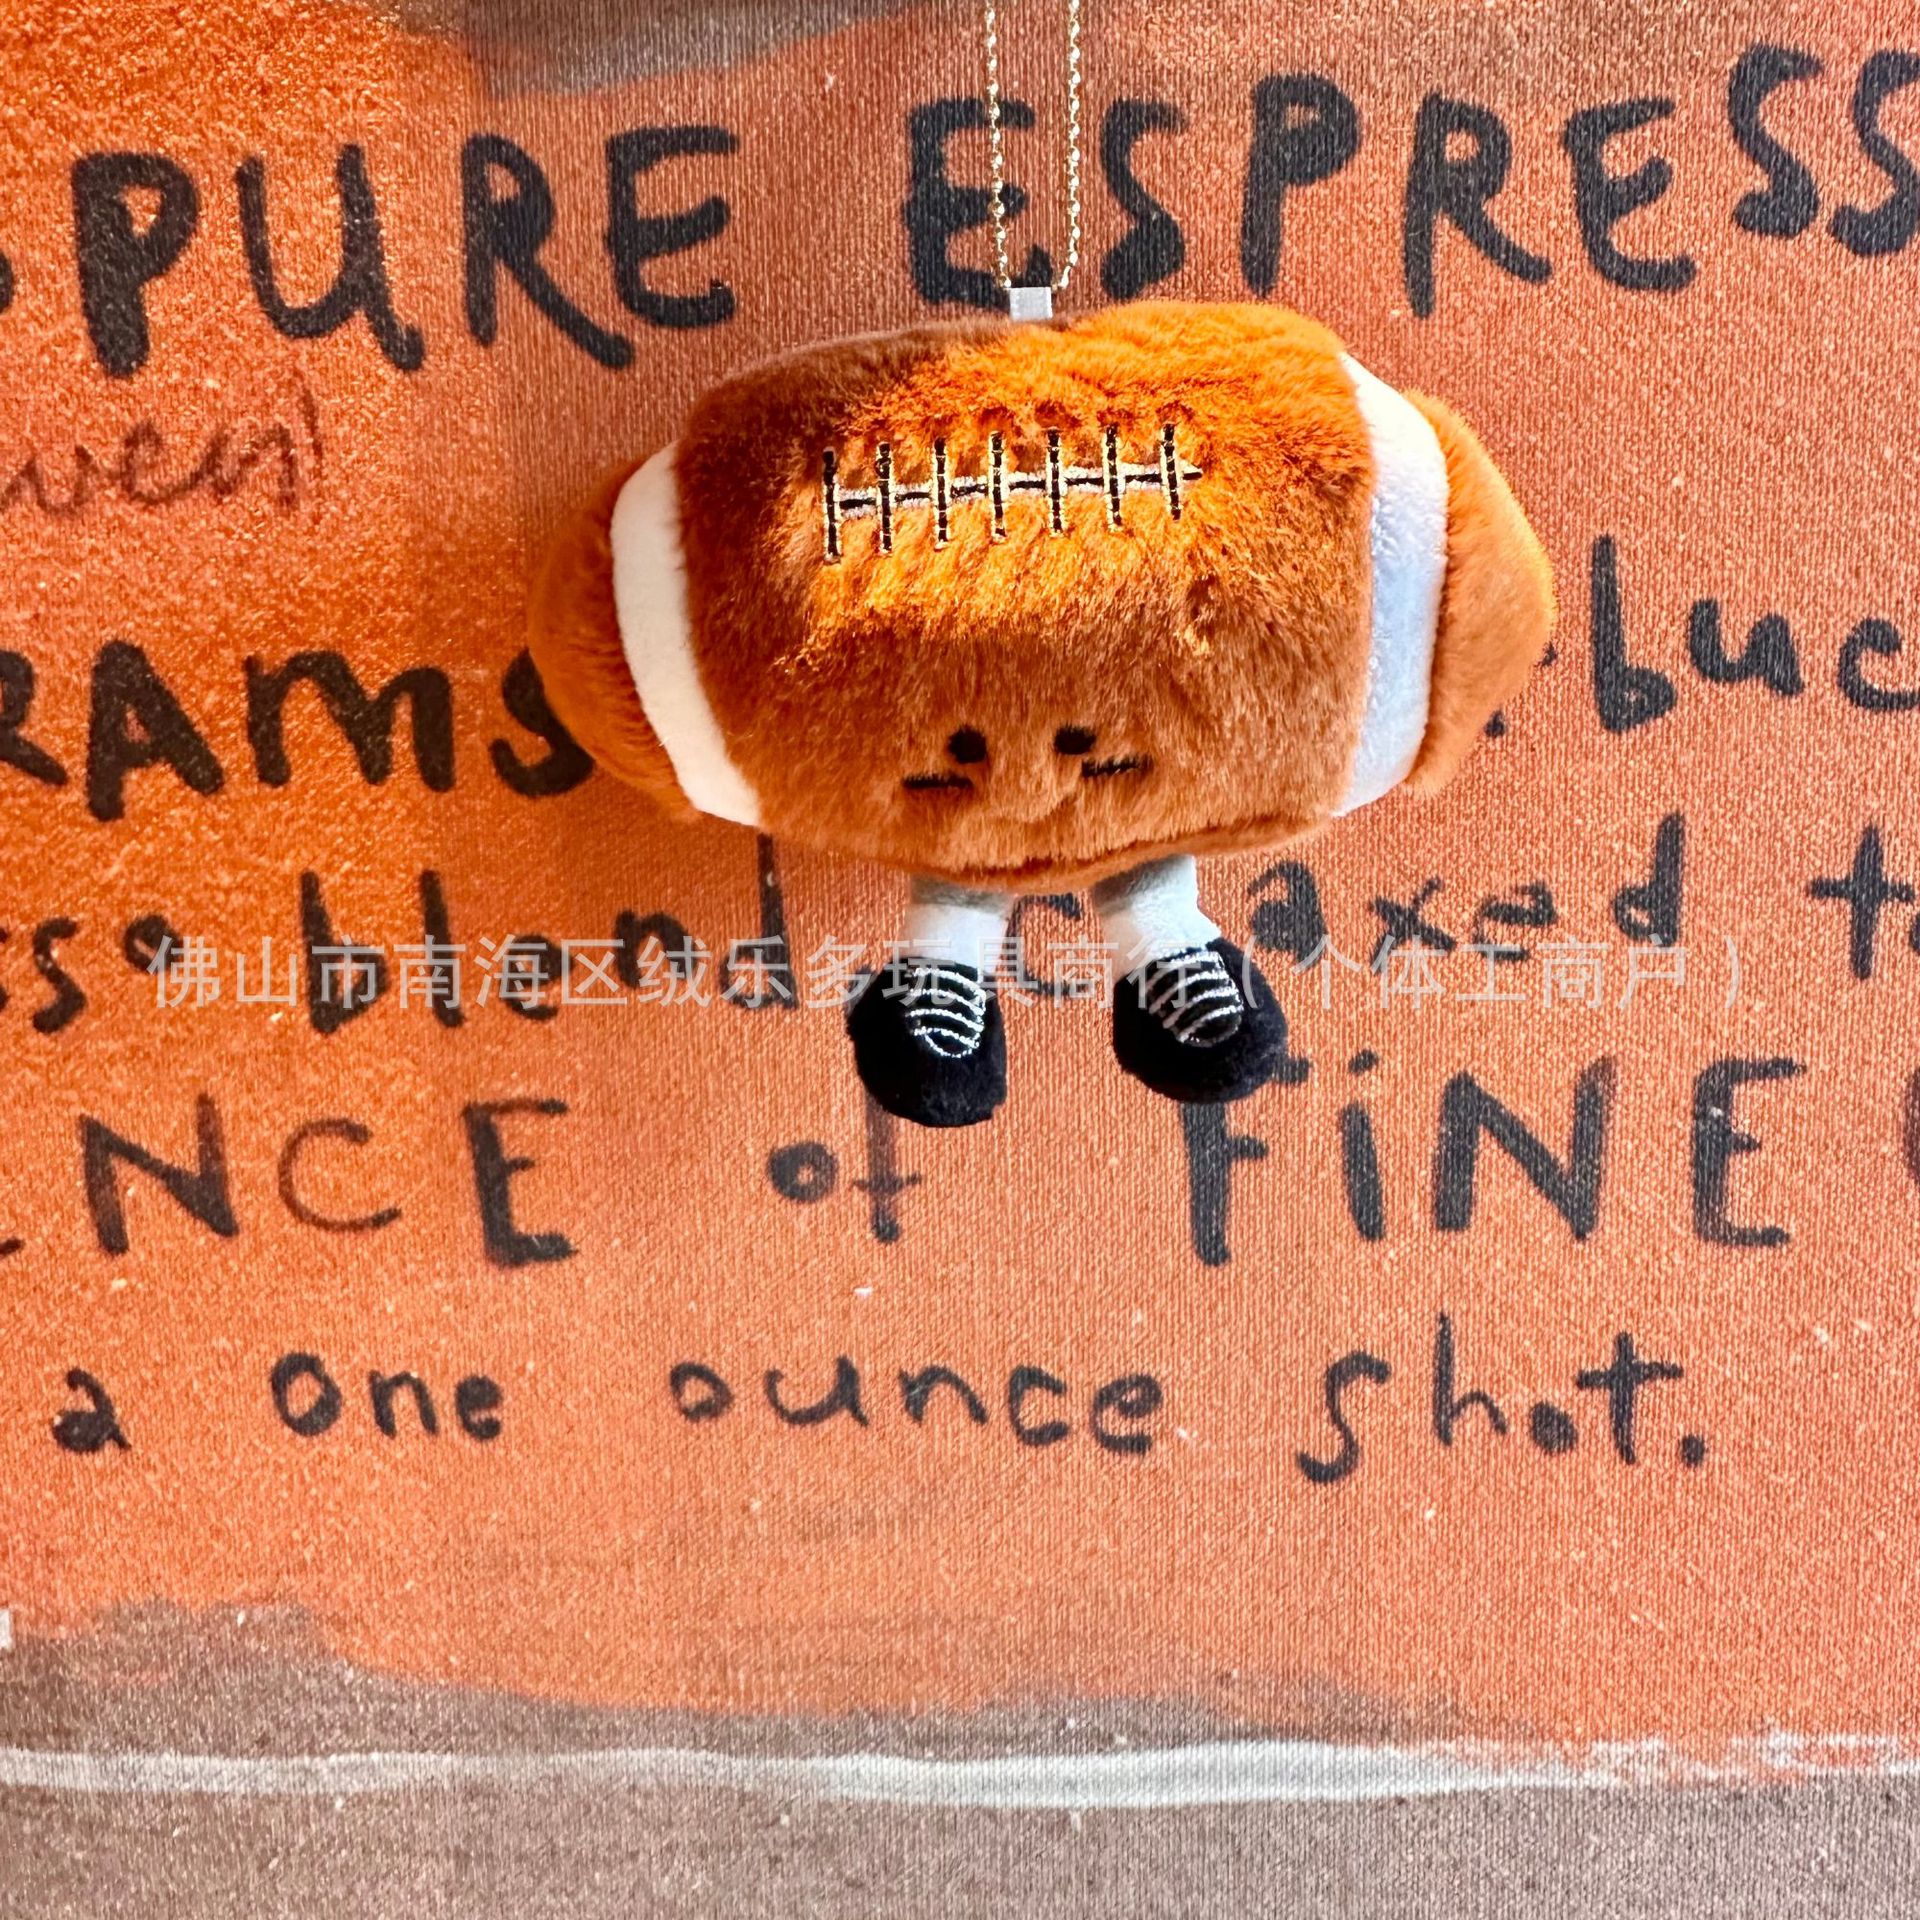 PURE ESPRESS
RAMS buc
blend axed
佛山市南海区绒乐多玩具商行（个体工商户）
NCE of FiNE
a one ounce shot.